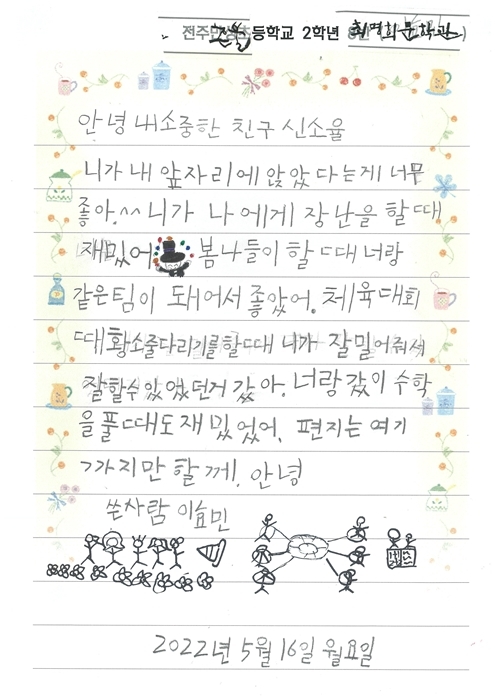 전주 초등학교 2학년 최명희문학관
안녕 내소중한 친구 신소율
니가 내 앞자리에 앉았다는게 너무
좋아.^^ 니가 나에게 장난을 할때
재밌어 봄나들이 할 때 너랑
같은팀이 돼어서 좋았어. 체육대회
때황소줄다리기를할때 니가 잘밀어줘서
잘할수있었던거 갔아. 너랑 갔이 수학
을풀때도재밌었어. 편지는 여기
까지만 할께. 안녕
쓴사람 이효민
2022년 5월 16일 월요일